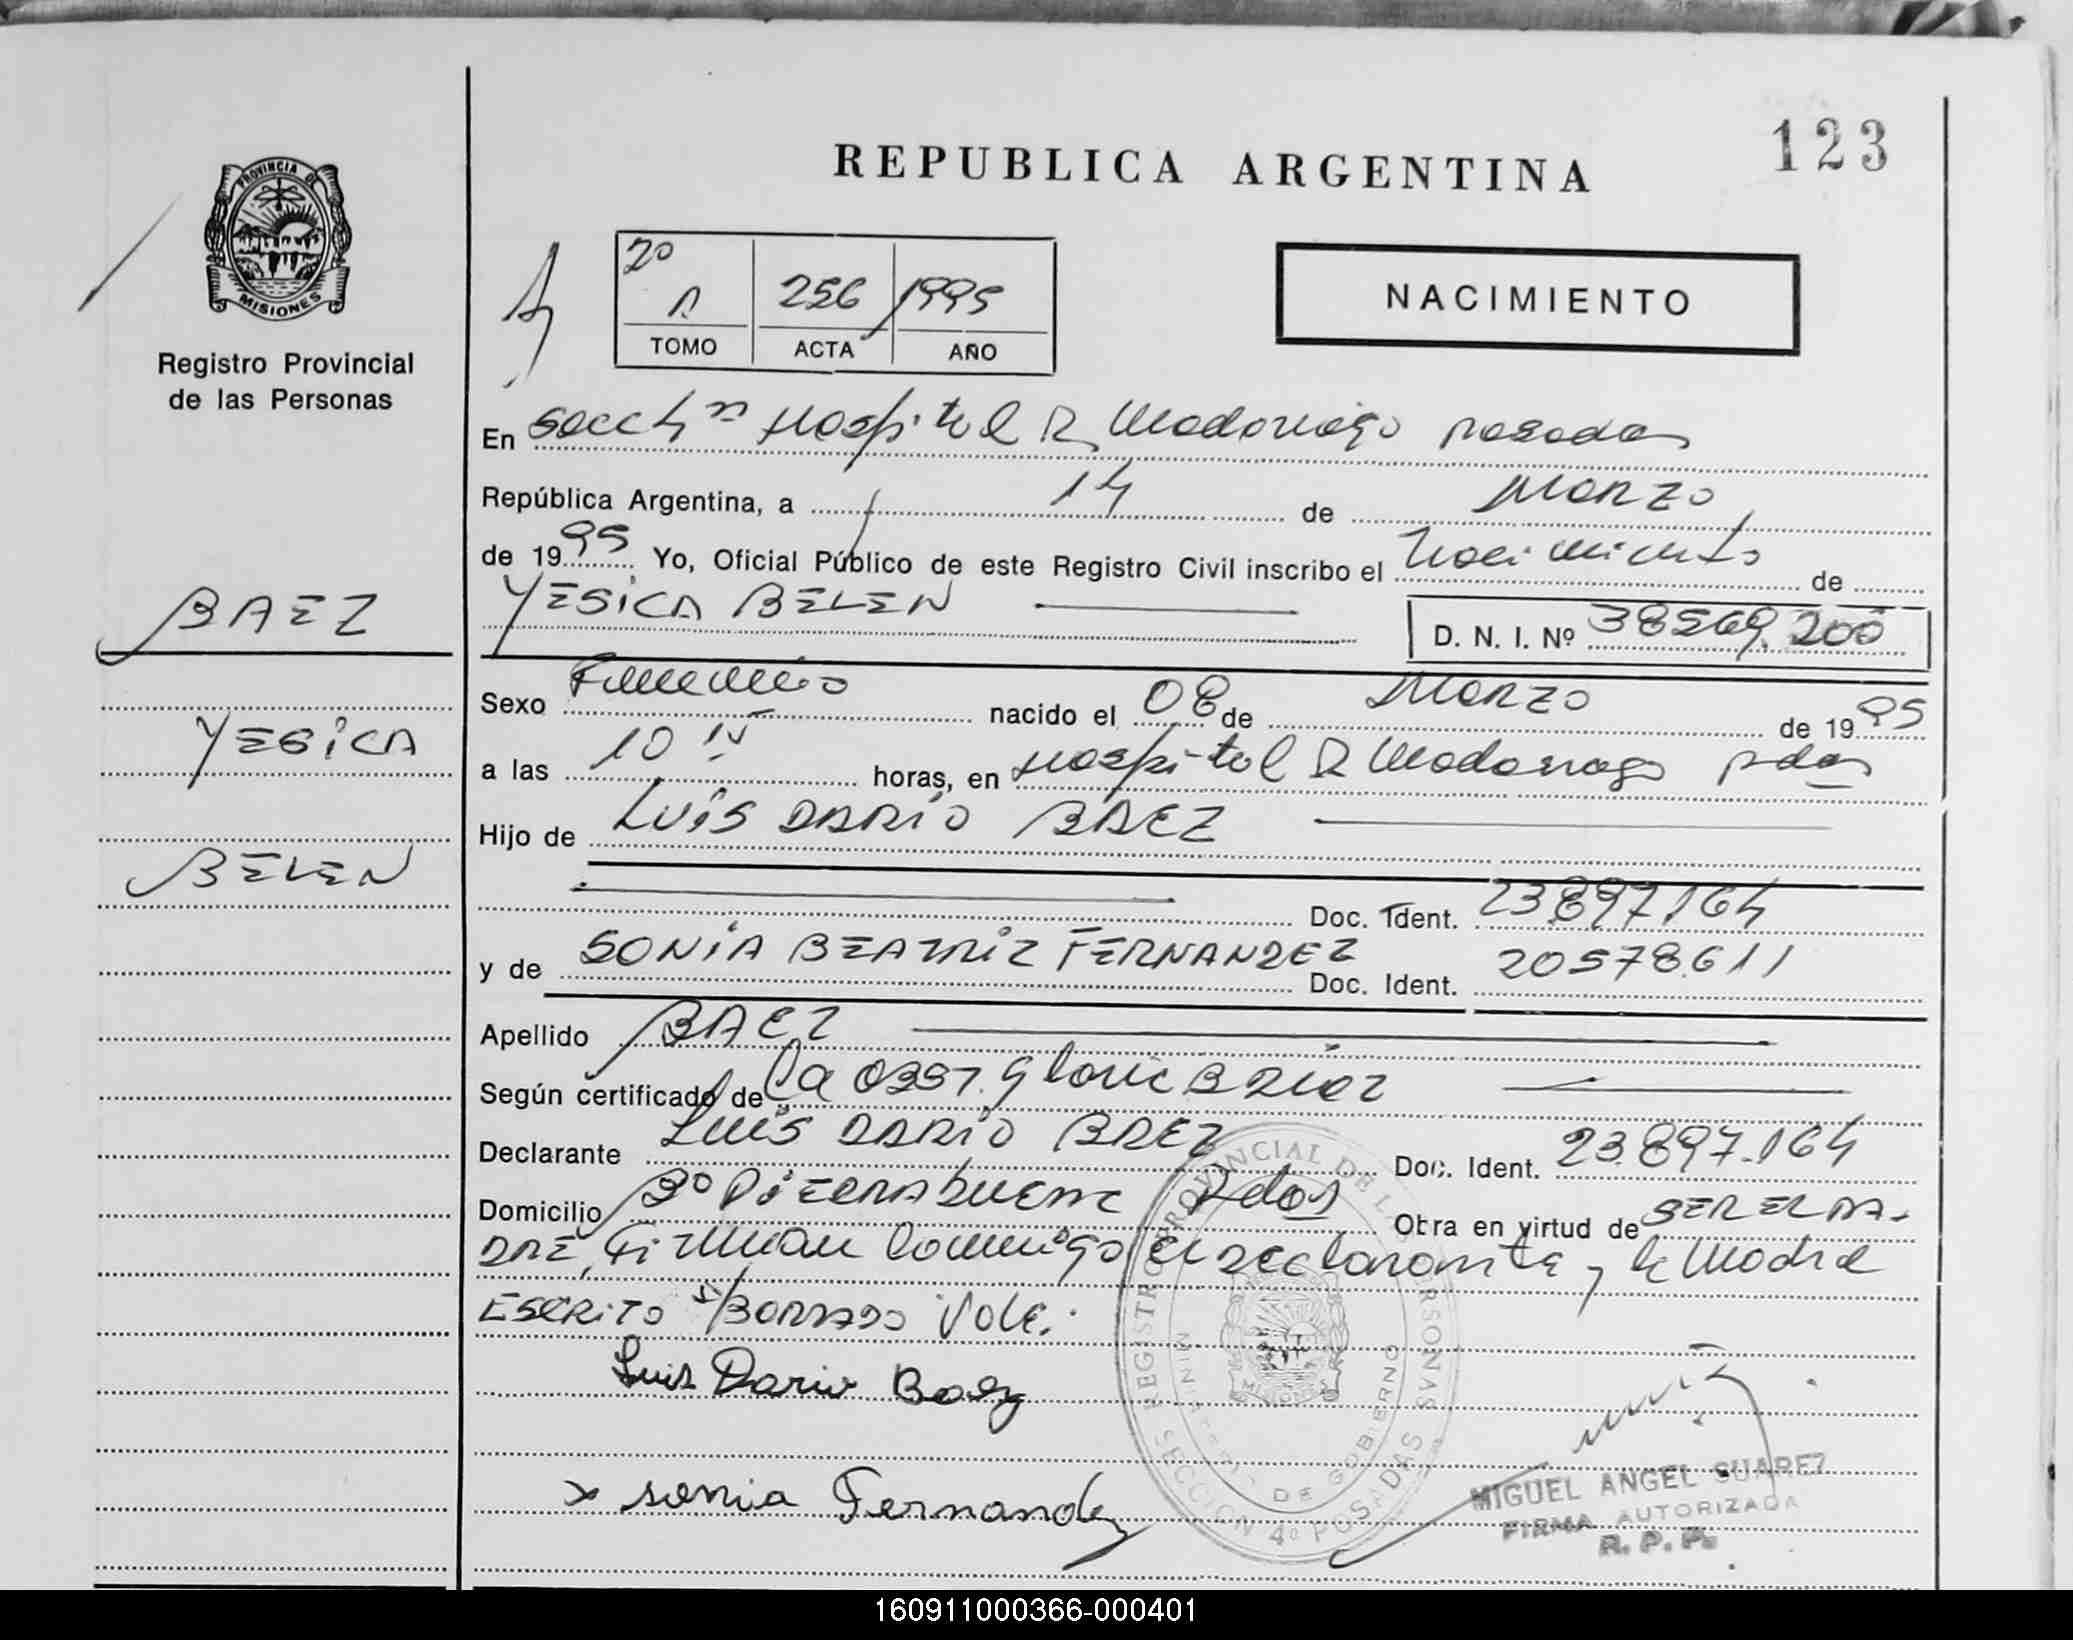 REPUBLICA ARGENTINA
123
PROVINCIA DE
MISIONES
Registro Provincial
de las Personas
2º
A 256 1995
TOMO ACTA AÑO
NACIMIENTO
En Seccn Hospital R Madariaga Posadas
República Argentina, a 14 de Marzo
de 1995 Yo, Oficial Público de este Registro Civil inscribo el Nacimiento de
YESICA BELEN D. N. I. Nº 38569.200
BAEZ
YESICA
BELEN
Sexo Femenino nacido el 08 de Marzo de 1995
a las 10 15 horas, en Hospital R Madariaga Pdas
Hijo de LUIS DARIO BAEZ
Doc. Ident. 23.897.164
y de SONIA BEATRIZ FERNANDEZ Doc. Ident. 20578.611
Apellido BAEZ
Según certificado de la OBST. Gloria
Declarante LUIS DARIO BAEZ Doc. Ident. 23.897.164
Domicilio Bº Pdas Otra en virtud de SER EL PA-
DRE, Firman Conmigo el Declarante y la Madre
ESCRITO S/BORRADO Vale.
Luis Dario Baez
x sonia Fernandez
REGISTRO PROVINCIAL DE LAS PERSONAS
MINISTERIO DE GOBIERNO
SECCION 4º POSADAS
MIGUEL ANGEL SUAREZ
FIRMA AUTORIZADA
R. P. P.
160911000366-000401